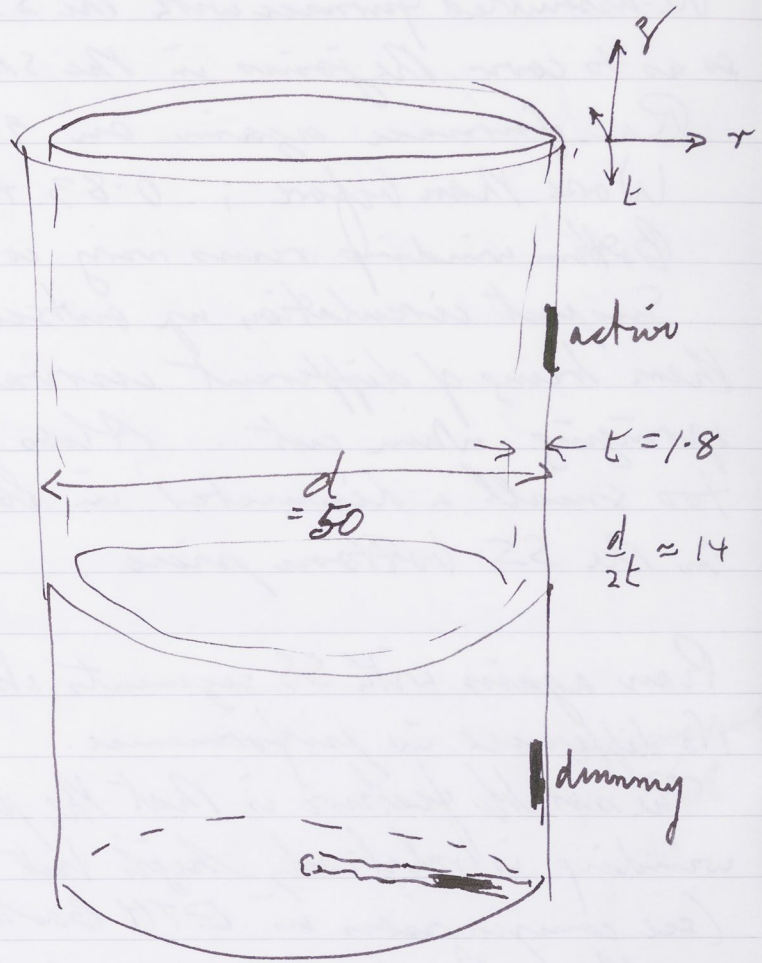 γ
r
t
active
t = 1.8
d
= 50
d/2t ≈ 14
dummy